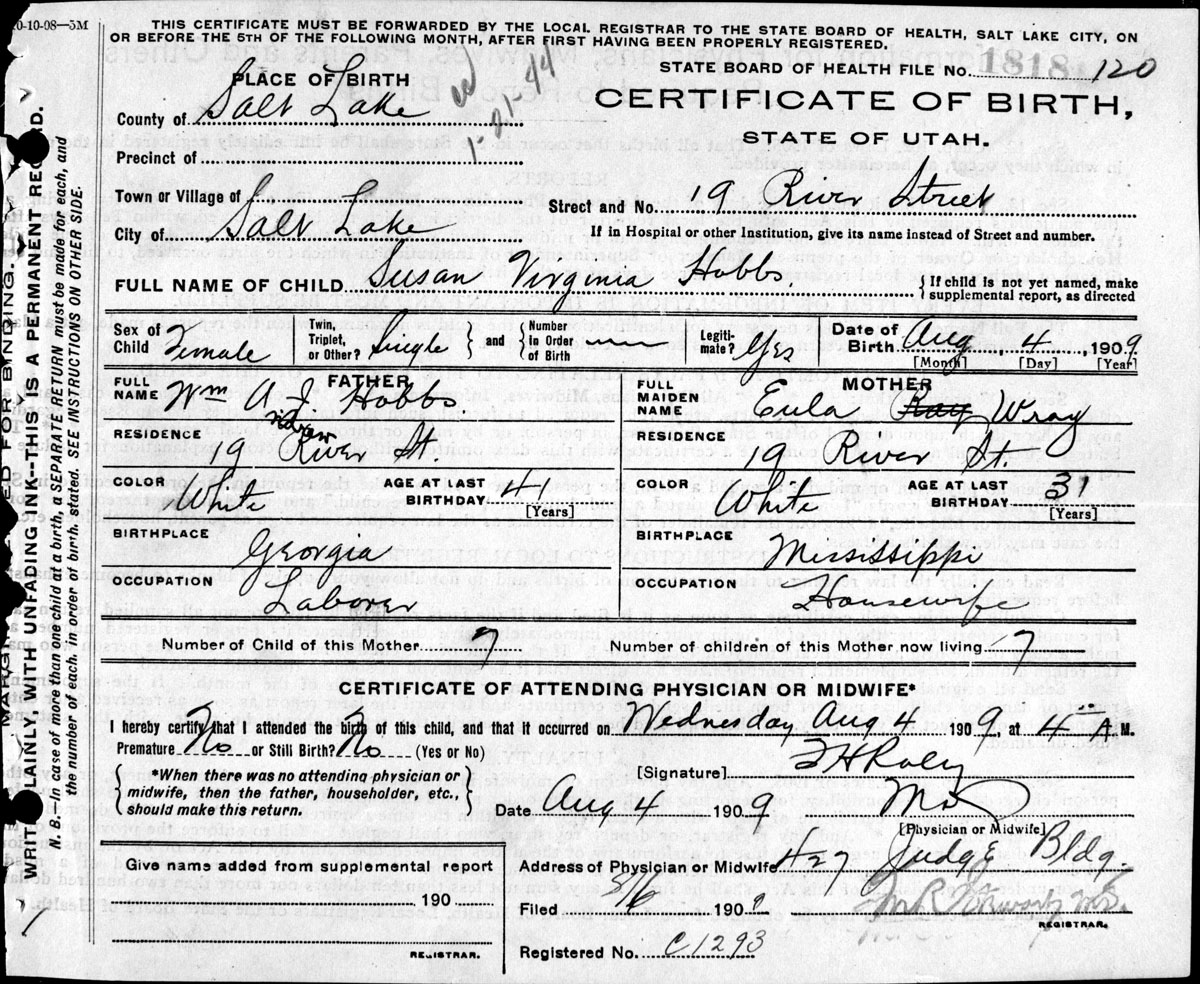 10-10-08—5M
THIS CERTIFICATE MUST BE FORWARDED BY THE LOCAL REGISTRAR TO THE STATE BOARD OF HEALTH, SALT LAKE CITY, ON
OR BEFORE THE 5TH OF THE FOLLOWING MONTH, AFTER FIRST HAVING BEEN PROPERLY REGISTERED.
PLACE OF BIRTH
1-21-44
STATE BOARD OF HEALTH FILE No. 1818 120
County of Salt Lake
CERTIFICATE OF BIRTH,
STATE OF UTAH.
Precinct of
Town or Village of
Street and No. 19 River Street
City of Salt Lake
If in Hospital or other Institution, give its name instead of Street and number.
FULL NAME OF CHILD Susan Virginia Hobbs. { If child is not yet named, make
supplemental report, as directed
Sex of Child Female
Twin, Triplet, or Other? Single } and { Number in Order of Birth
Legiti- mate? Yes
Date of Birth Aug 4, 1909
[Month] [Day] [Year]
FATHER
FULL NAME Wm A J Hobbs
ndrew
RESIDENCE 19 River St.
COLOR White AGE AT LAST BIRTHDAY 41 [Years]
BIRTHPLACE Georgia
OCCUPATION Laborer
MOTHER
FULL MAIDEN NAME Eula Ray Wray
RESIDENCE 19 River St.
COLOR White AGE AT LAST BIRTHDAY 31 [Years]
BIRTHPLACE Mississippi
OCCUPATION Housewife
Number of Child of this Mother 7 Number of children of this Mother now living 7
CERTIFICATE OF ATTENDING PHYSICIAN OR MIDWIFE*
I hereby certify that I attended the birth of this child, and that it occurred on Wednesday Aug 4 1909, at 4 A.M.
Premature No or Still Birth? No (Yes or No)
[Signature]
*When there was no attending physician or
midwife, then the father, householder, etc.,
should make this return.
Date Aug 4 1909 MD
[Physician or Midwife]
Give name added from supplemental report
190
REGISTRAR.
Address of Physician or Midwife 427 Judge Bldg.
Filed 8/6 1909
REGISTRAR.
Registered No. C1293
WRITE PLAINLY WITH UNFADING INK--THIS IS A PERMANENT RECORD.
N. B.—In case of more than one child at a birth, a SEPARATE RETURN must be made for each, and
the number of each, in order of birth, stated. SEE INSTRUCTIONS ON OTHER SIDE.
FOR BINDING.